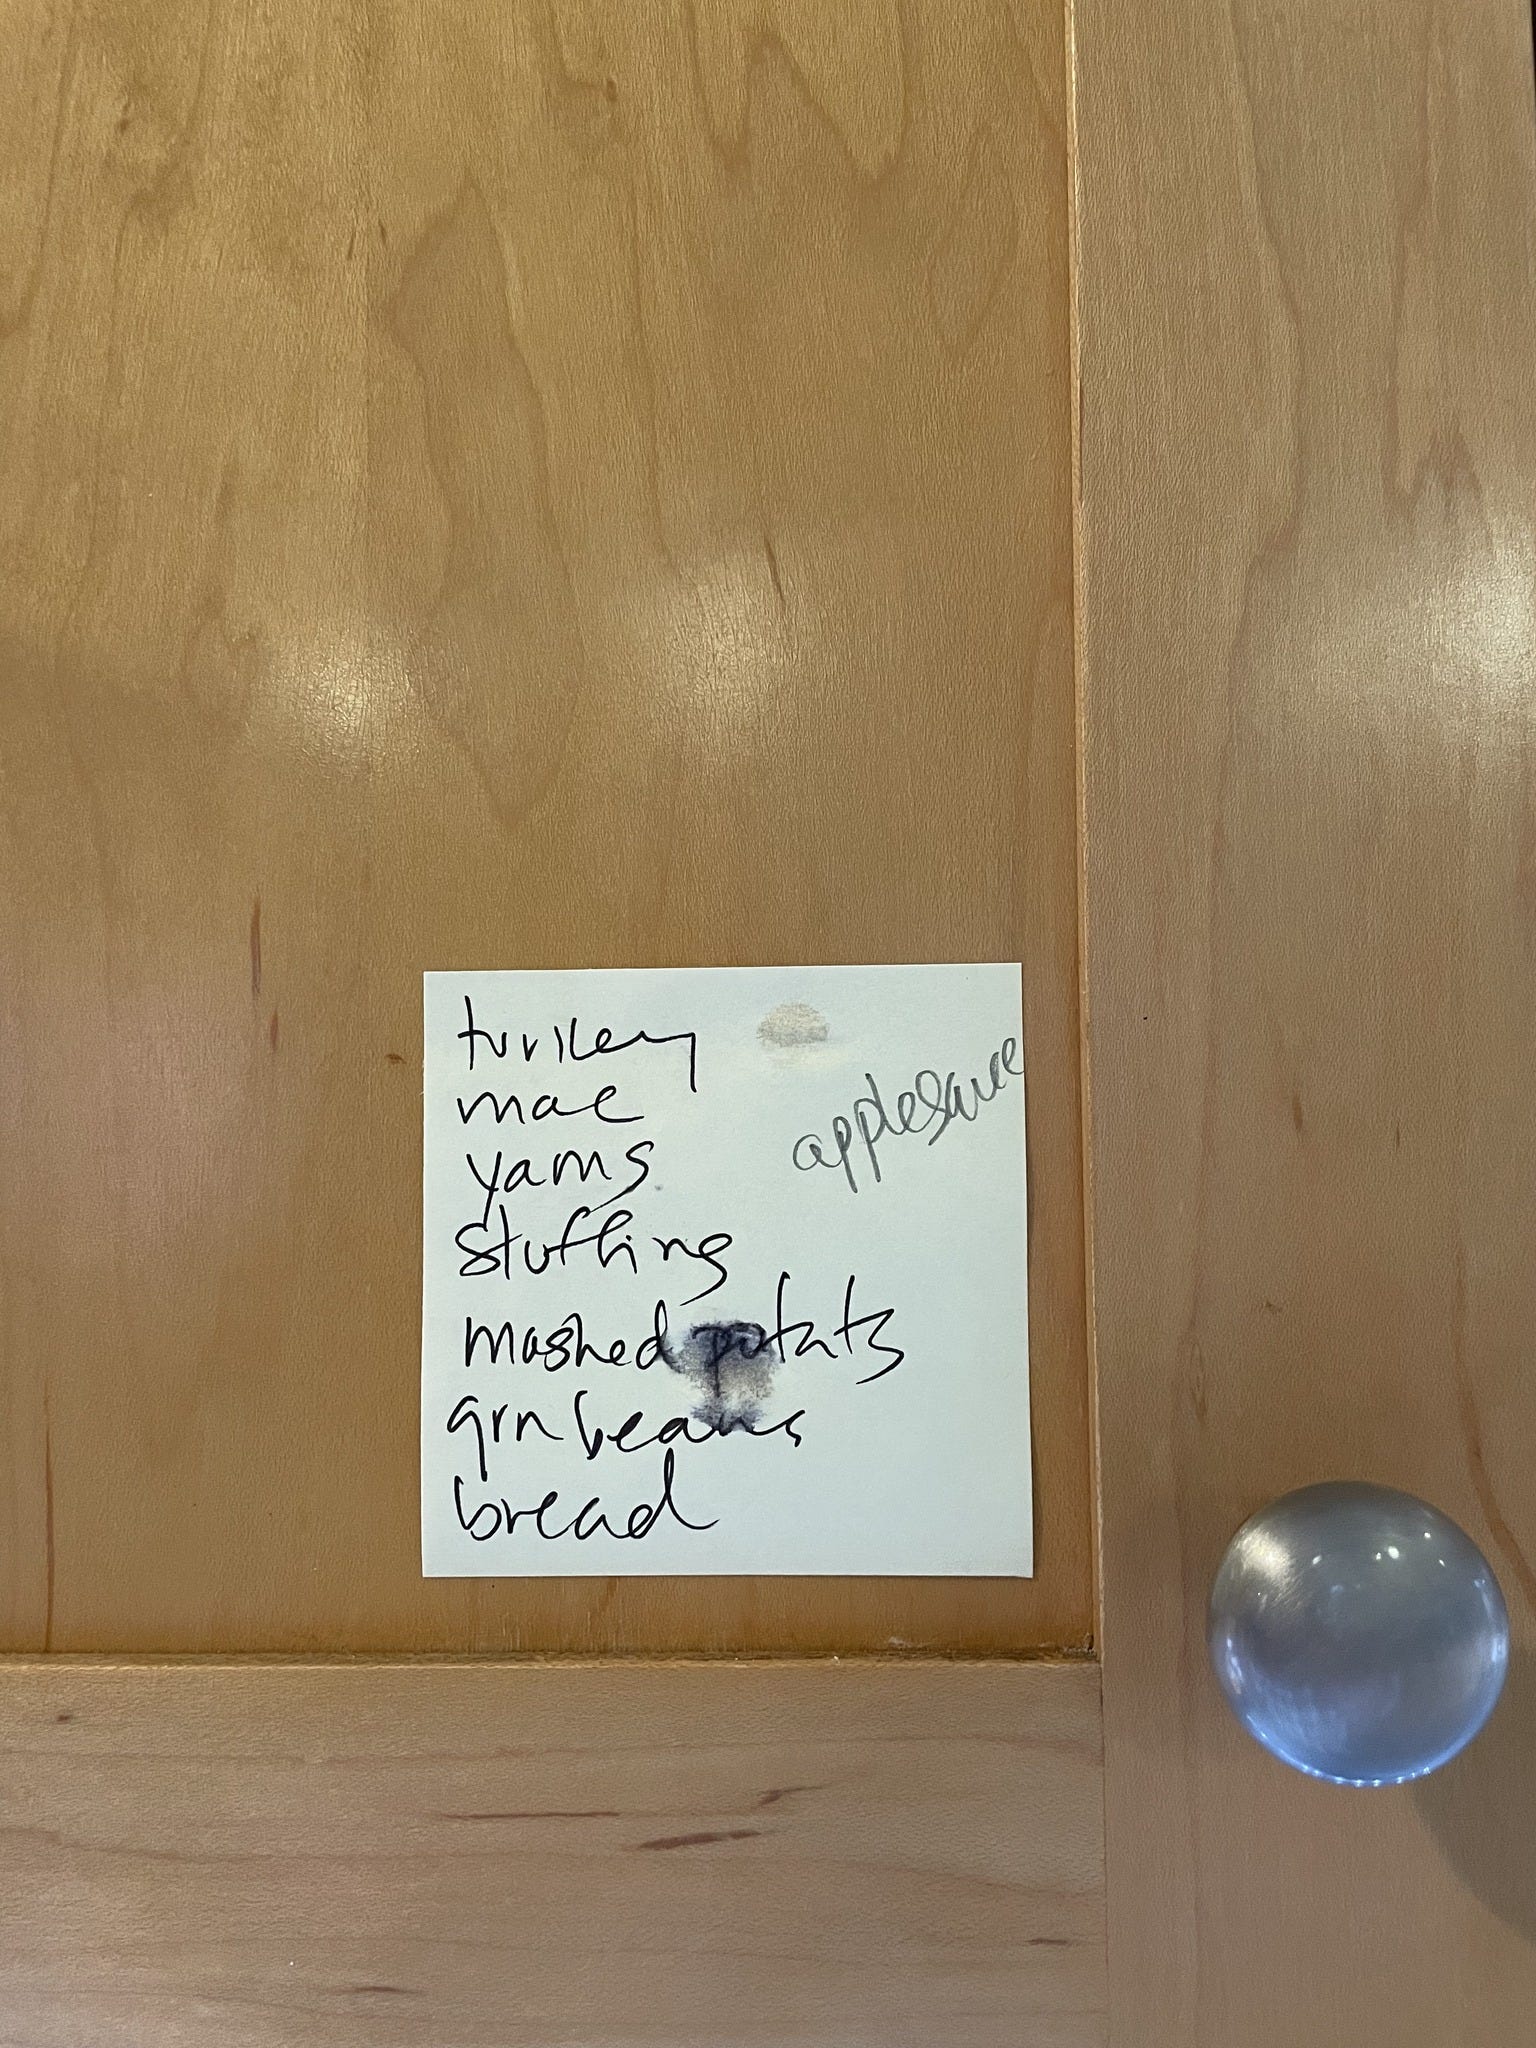 turkey
applesauce
mac
yams
stuffing
mashed potats
grn beans
bread